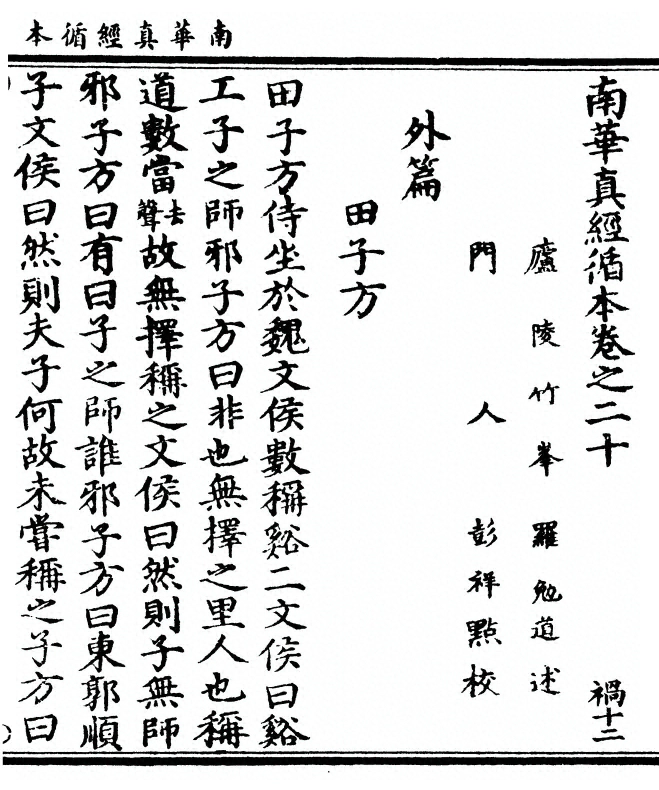 南華真經循本
南華真經循本卷之二十 禍十二
廬陵竹峯羅勉道述
門人彭祥點校
外篇
田子方
田子方侍坐於魏文侯數稱谿二文侯曰谿
工子之師邪子方曰非也無擇之里人也稱
道數當去聲故無擇稱之文侯曰然則子無師
邪子方曰有曰子之師誰邪子方曰東郭順
子文侯曰然則夫子何故未嘗稱之子方曰